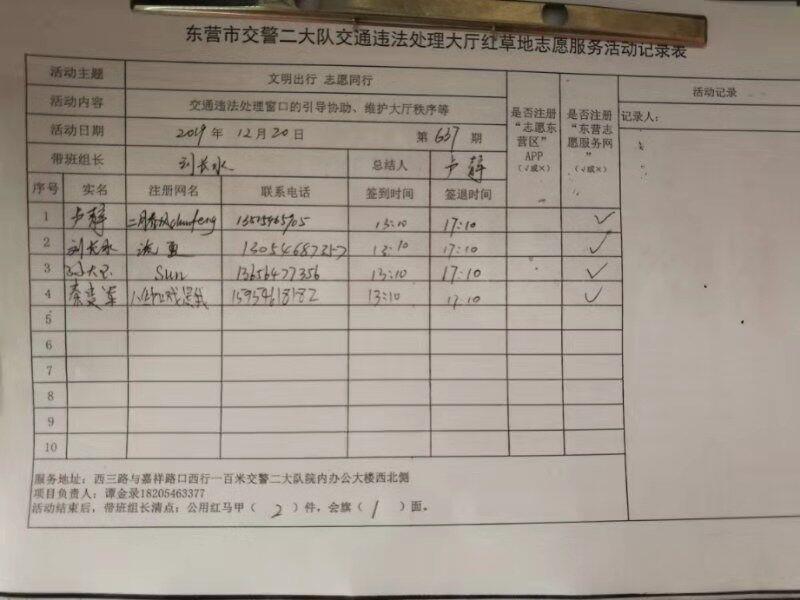 东营市交警二大队交通违法处理大厅红草地志愿服务活动记录表
活动主题 文明出行 志愿同行
活动内容 交通违法处理窗口的引导协助、维护大厅秩序等
活动日期 2019 年 12 月 20 日 第 637 期
带班组长 刘长水 总结人 卢静
是否注册“志愿东营区”APP(√或×)
是否注册“东营志愿服务网”(√或×)
活动记录
记录人:
序号 实名 注册网名 联系电话 签到时间 签退时间
1 卢静 13:10 17:10 √
2 刘长水 13054687257 13:10 17:10 √
3 Sun 13656477356 13:10 17:10 √
4 15954618182 13:10 17:10 √
5
6
7
8
9
10
服务地址:西三路与嘉祥路口西行一百米交警二大队院内办公大楼西北侧
项目负责人:谭金录18205463377
活动结束后,带班组长清点:公用红马甲( 2 )件,会旗( 1 )面。